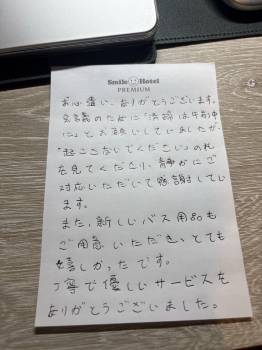 Smile Hotel
PREMIUM
お心遣い、ありがとうございます。
会議のために「清掃は午前中
に」とお願いしていましたが、
"起こさないでください"の札
を見てくださり、静かにご
対応いただいて感謝してい
ます。
また、新しいバス用品も
ご用意いただき、とても
嬉しかったです。
丁寧で優しいサービスを
ありがとうございました。